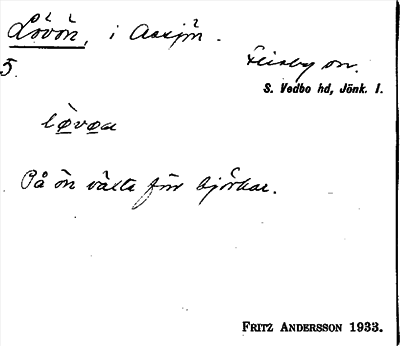 Lövön, i Assjön.
5.
Flisby sn.
S. Vedbo hd, Jönk. l.
På ön växte förr björkar.
FRITZ ANDERSSON 1933.